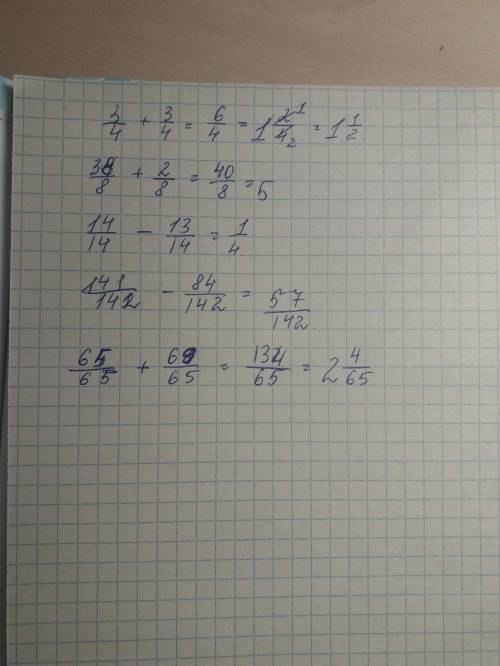 3/4 + 3/4 = 6/4 = 1 2¹/4₂ = 1 1/2.
38/8 + 2/8 = 40/8 = 5
14/14 - 13/14 = 1/4.
141/142 - 84/142 = 57/142.
65/65 + 69/65 = 134/65 = 2 4/65